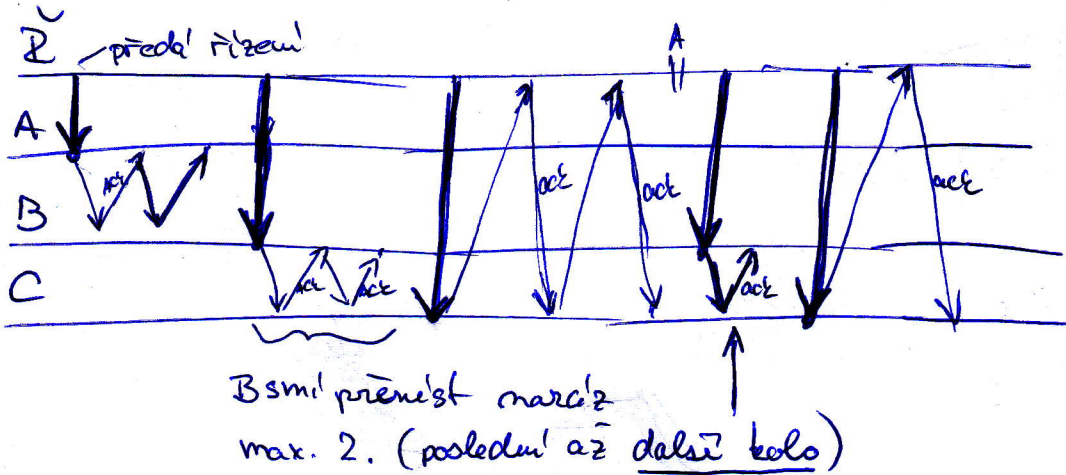 Ř předá řízení
A
A
ack
ack
ack
ack
B
C
ack
ack
ack
B smí přenést naráz
max. 2. (poslední až další kolo)